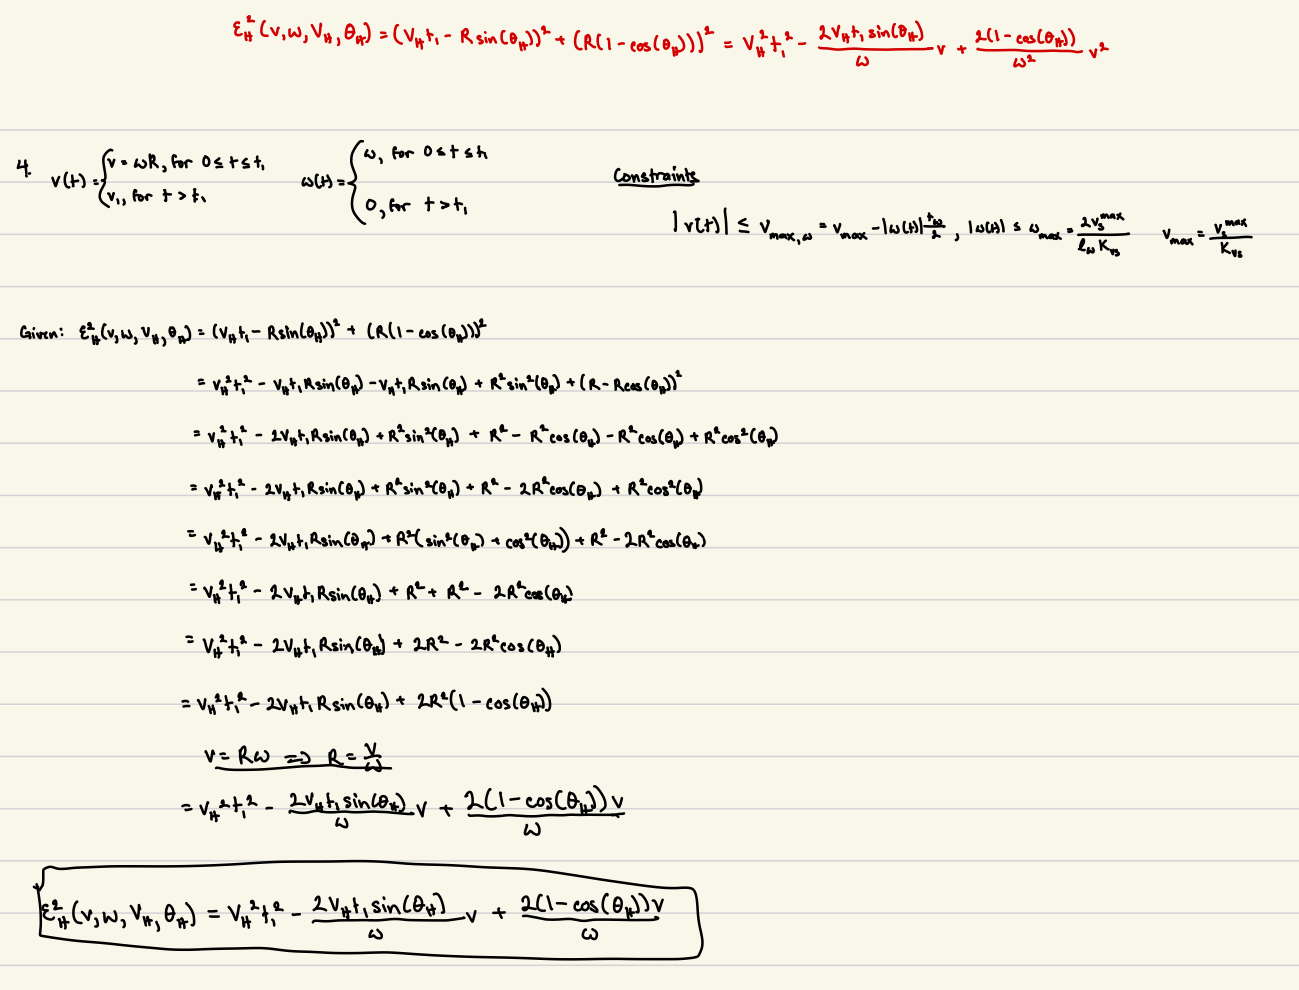 ε_H²(v,ω,V_H,θ_H) = (V_H t₁ - R sin(θ_H))² + (R(1-cos(θ_H)))² = V_H² t₁² - \frac{2V_H t₁ sin(θ_H)}{ω} v + \frac{2(1-cos(θ_H))}{ω²} v²
4. v(t) = { v = ωR, for 0 ≤ t ≤ t₁ ; v₁, for t > t₁   ω(t) = { ω, for 0 ≤ t ≤ t₁ ; 0, for t > t₁
Constraints
|v(t)| ≤ v_{max,ω} = v_{max} - |ω(t)| \frac{t_ω}{2}, |ω(t)| ≤ ω_{max} = \frac{2v_s^{max}}{l_ω K_{vs}}   v_{max} = \frac{v_s^{max}}{K_{vs}}
Given: ε_H²(v,ω,V_H,θ_H) = (V_H t₁ - R sin(θ_H))² + (R(1-cos(θ_H)))²
= V_H² t₁² - V_H t₁ R sin(θ_H) - V_H t₁ R sin(θ_H) + R² sin²(θ_H) + (R - R cos(θ_H))²
= V_H² t₁² - 2V_H t₁ R sin(θ_H) + R² sin²(θ_H) + R² - R² cos(θ_H) - R² cos(θ_H) + R² cos²(θ_H)
= V_H² t₁² - 2V_H t₁ R sin(θ_H) + R² sin²(θ_H) + R² - 2R² cos(θ_H) + R² cos²(θ_H)
= V_H² t₁² - 2V_H t₁ R sin(θ_H) + R²(sin²(θ_H) + cos²(θ_H)) + R² - 2R² cos(θ_H)
= V_H² t₁² - 2V_H t₁ R sin(θ_H) + R² + R² - 2R² cos(θ_H)
= V_H² t₁² - 2V_H t₁ R sin(θ_H) + 2R² - 2R² cos(θ_H)
= V_H² t₁² - 2V_H t₁ R sin(θ_H) + 2R²(1 - cos(θ_H))
v = Rω ⟹ R = \frac{v}{ω}
= V_H² t₁² - \frac{2V_H t₁ sin(θ_H)}{ω} v + \frac{2(1-cos(θ_H))v}{ω}
ε_H²(v,ω,V_H,θ_H) = V_H² t₁² - \frac{2V_H t₁ sin(θ_H)}{ω} v + \frac{2(1-cos(θ_H))v}{ω}